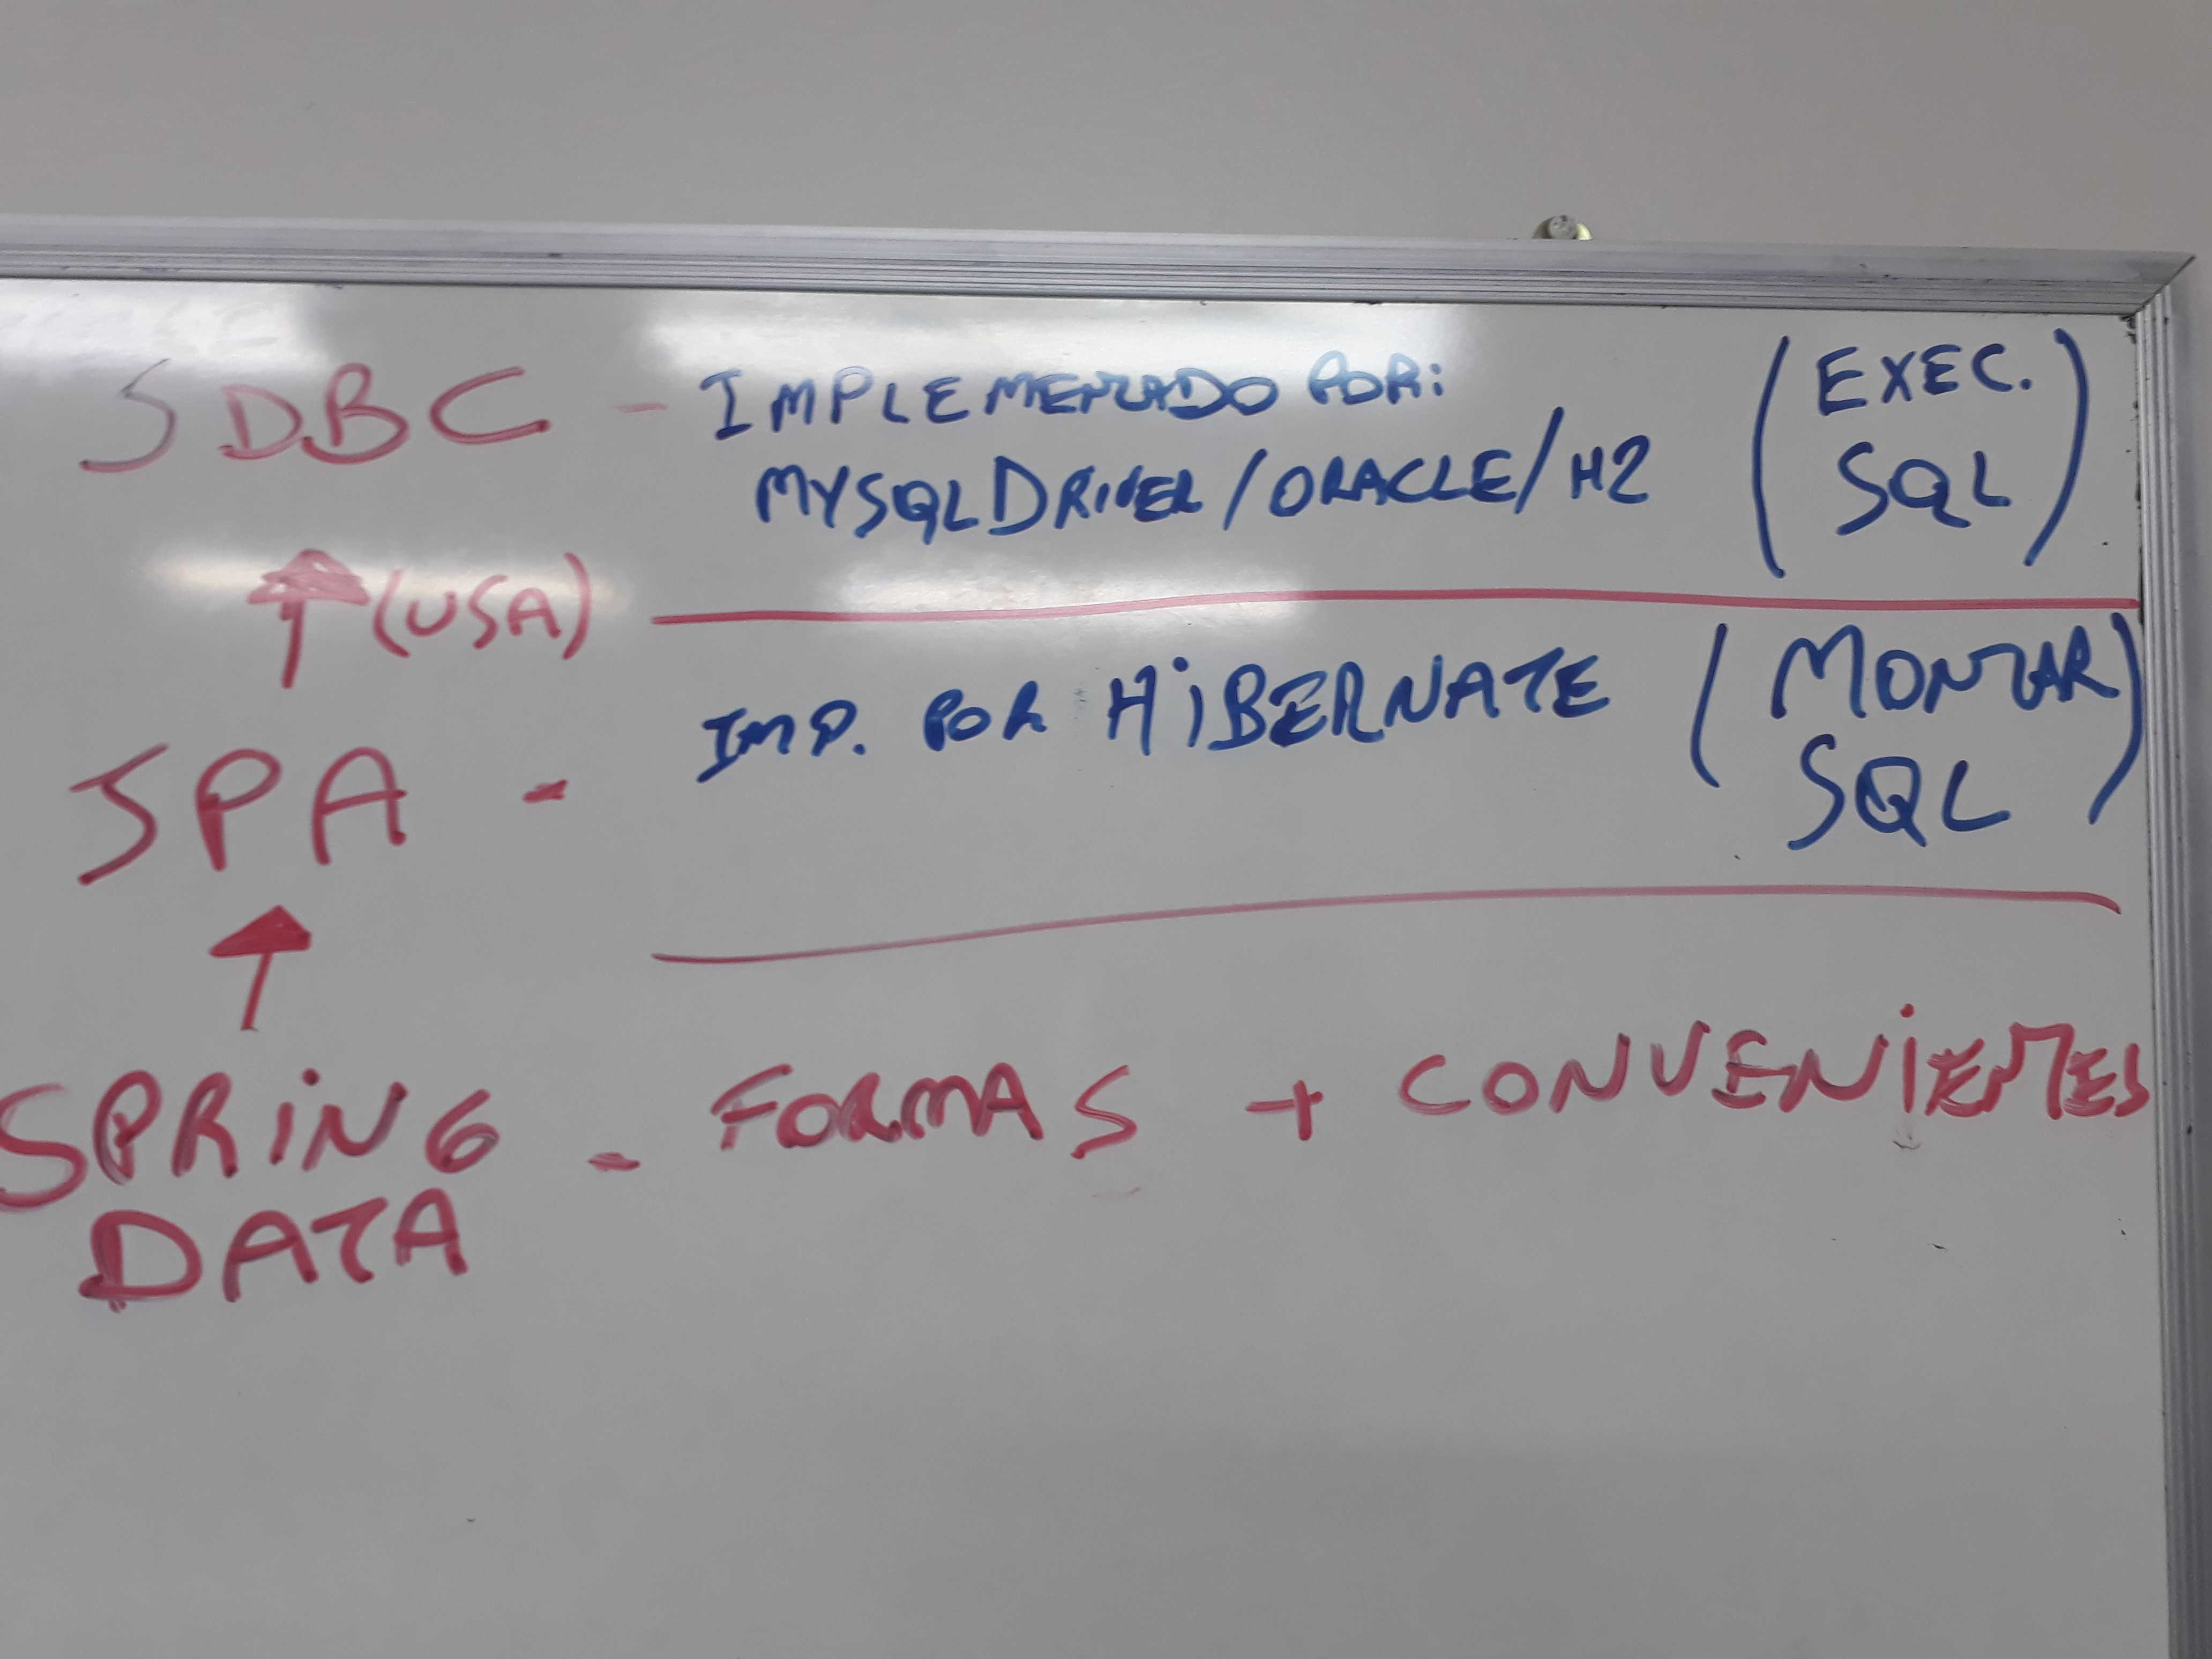 JDBC - IMPLEMENTADO POR: (EXEC.
MYSQLDRIVER/ORACLE/H2 SQL)
(USA)
JPA - IMP. POR HIBERNATE (MONTAR
SQL)
SPRING - FORMAS + CONVENIENTES
DATA